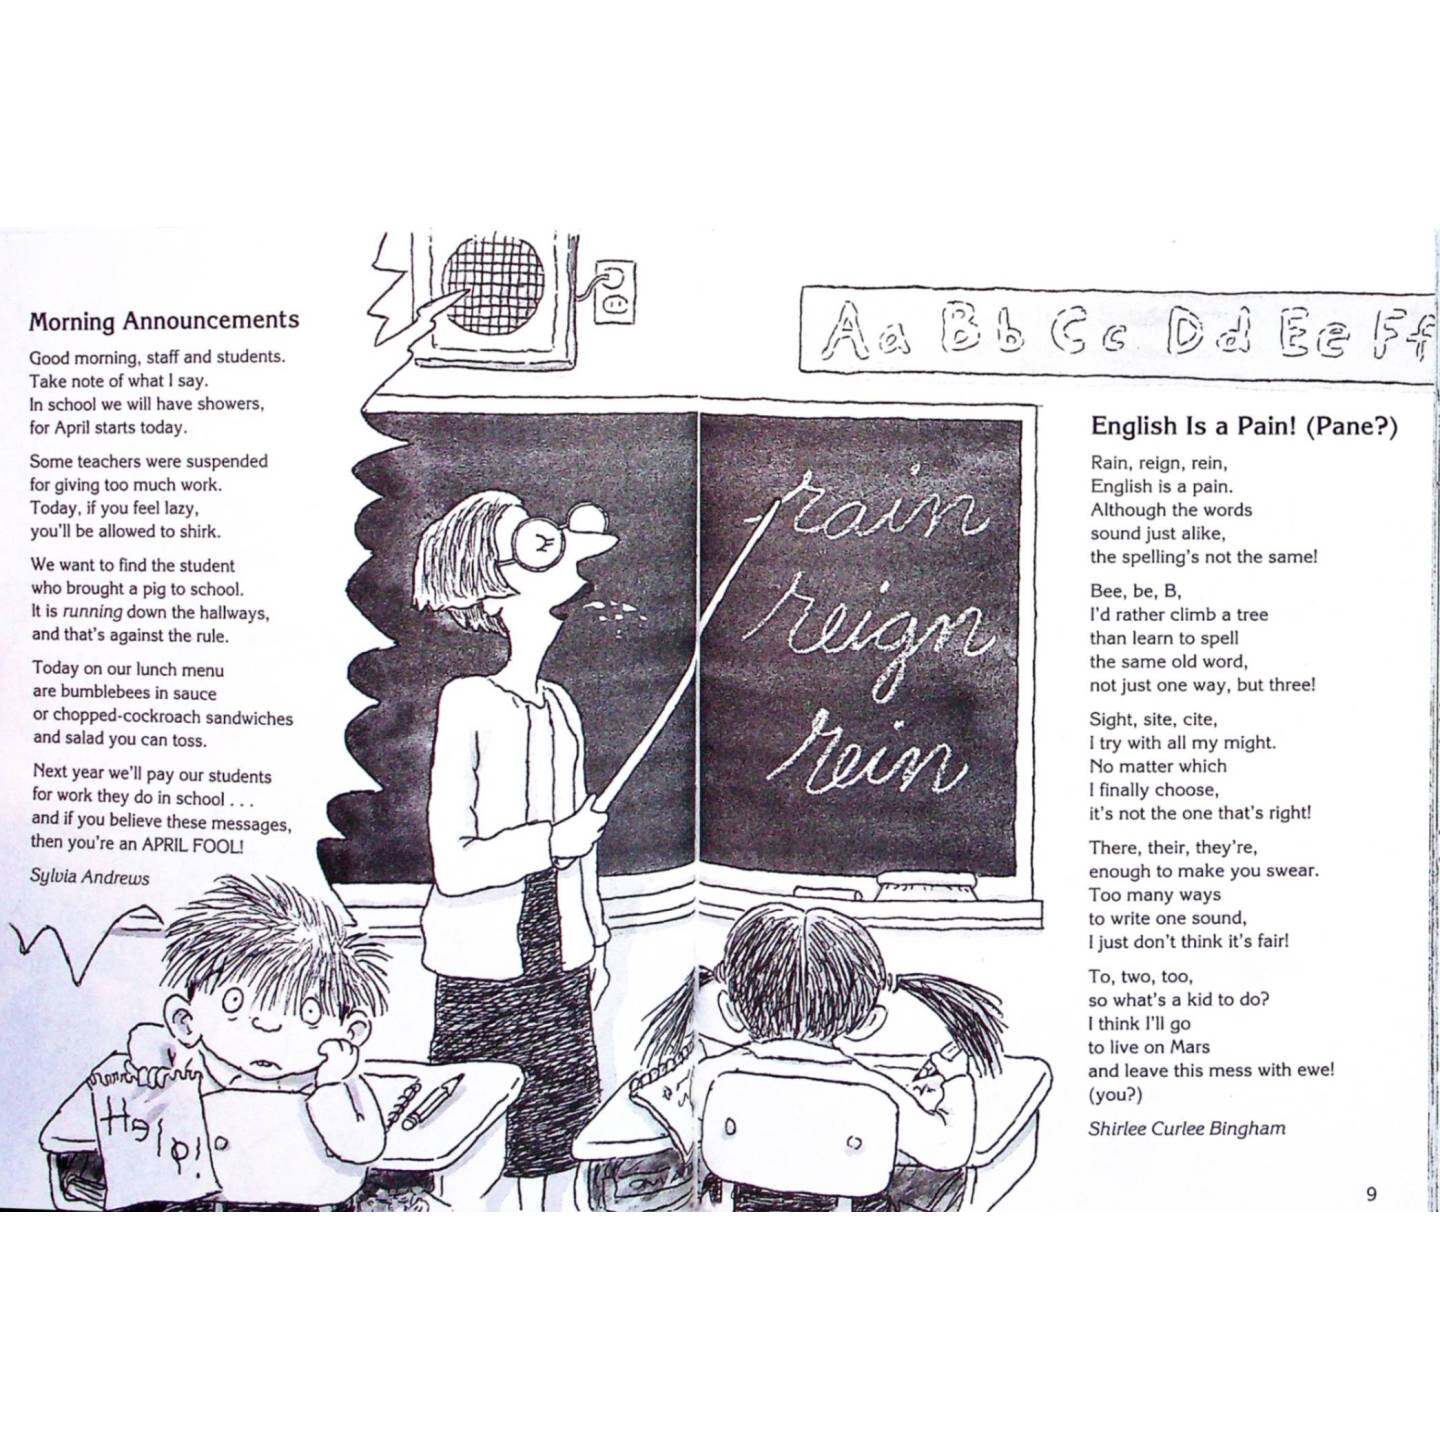 Morning Announcements
Good morning, staff and students.
Take note of what I say.
In school we will have showers,
for April starts today.
Some teachers were suspended
for giving too much work.
Today, if you feel lazy,
you'll be allowed to shirk.
We want to find the student
who brought a pig to school.
It is running down the hallways,
and that's against the rule.
Today on our lunch menu
are bumblebees in sauce
or chopped-cockroach sandwiches
and salad you can toss.
Next year we'll pay our students
for work they do in school . . .
and if you believe these messages,
then you're an APRIL FOOL!
Sylvia Andrews
Help!
Aa Bb Cc Dd Ee Ff
rain
reign
rein
English Is a Pain! (Pane?)
Rain, reign, rein,
English is a pain.
Although the words
sound just alike,
the spelling's not the same!
Bee, be, B,
I'd rather climb a tree
than learn to spell
the same old word,
not just one way, but three!
Sight, site, cite,
I try with all my might.
No matter which
I finally choose,
it's not the one that's right!
There, their, they're,
enough to make you swear.
Too many ways
to write one sound,
I just don't think it's fair!
To, two, too,
so what's a kid to do?
I think I'll go
to live on Mars
and leave this mess with ewe!
(you?)
Shirlee Curlee Bingham
9